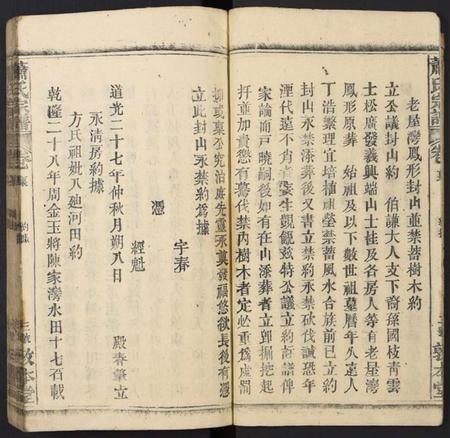 蕭氏宗譜
卷
老屋灣鳳形封山並禁蓄樹木約
立公議封山約 伯謙大人支下裔孫國枝青雲
士松廣發義興端山士桂及各房人等有老屋灣
鳳形原葬 始祖及以下數世祖墓曆年久遠人
丁浩繁理宜培植禁蓄風水合族前已立約
封山永禁添葬後又書立禁約永禁砍伐誠恐年
湮代遠不肖 生覬覦茲特公議立約商議俾
家諭而戶曉嗣後如有在山添葬者立卽掘挖起
扦重加責懲有竊伐禁內樹木者定必重為處罰
先靈永奠發福悠欲長後有憑
立此封山永禁約為據
憑
宇春
經魁
殿春肇立
道光二十七年仲秋月朔八日
永清房約據
方氏祖妣八廸河田約
乾隆二十八年周金玉將陳家灣水田十七石載
蕭氏宗譜
敦本堂
三號
敦本堂